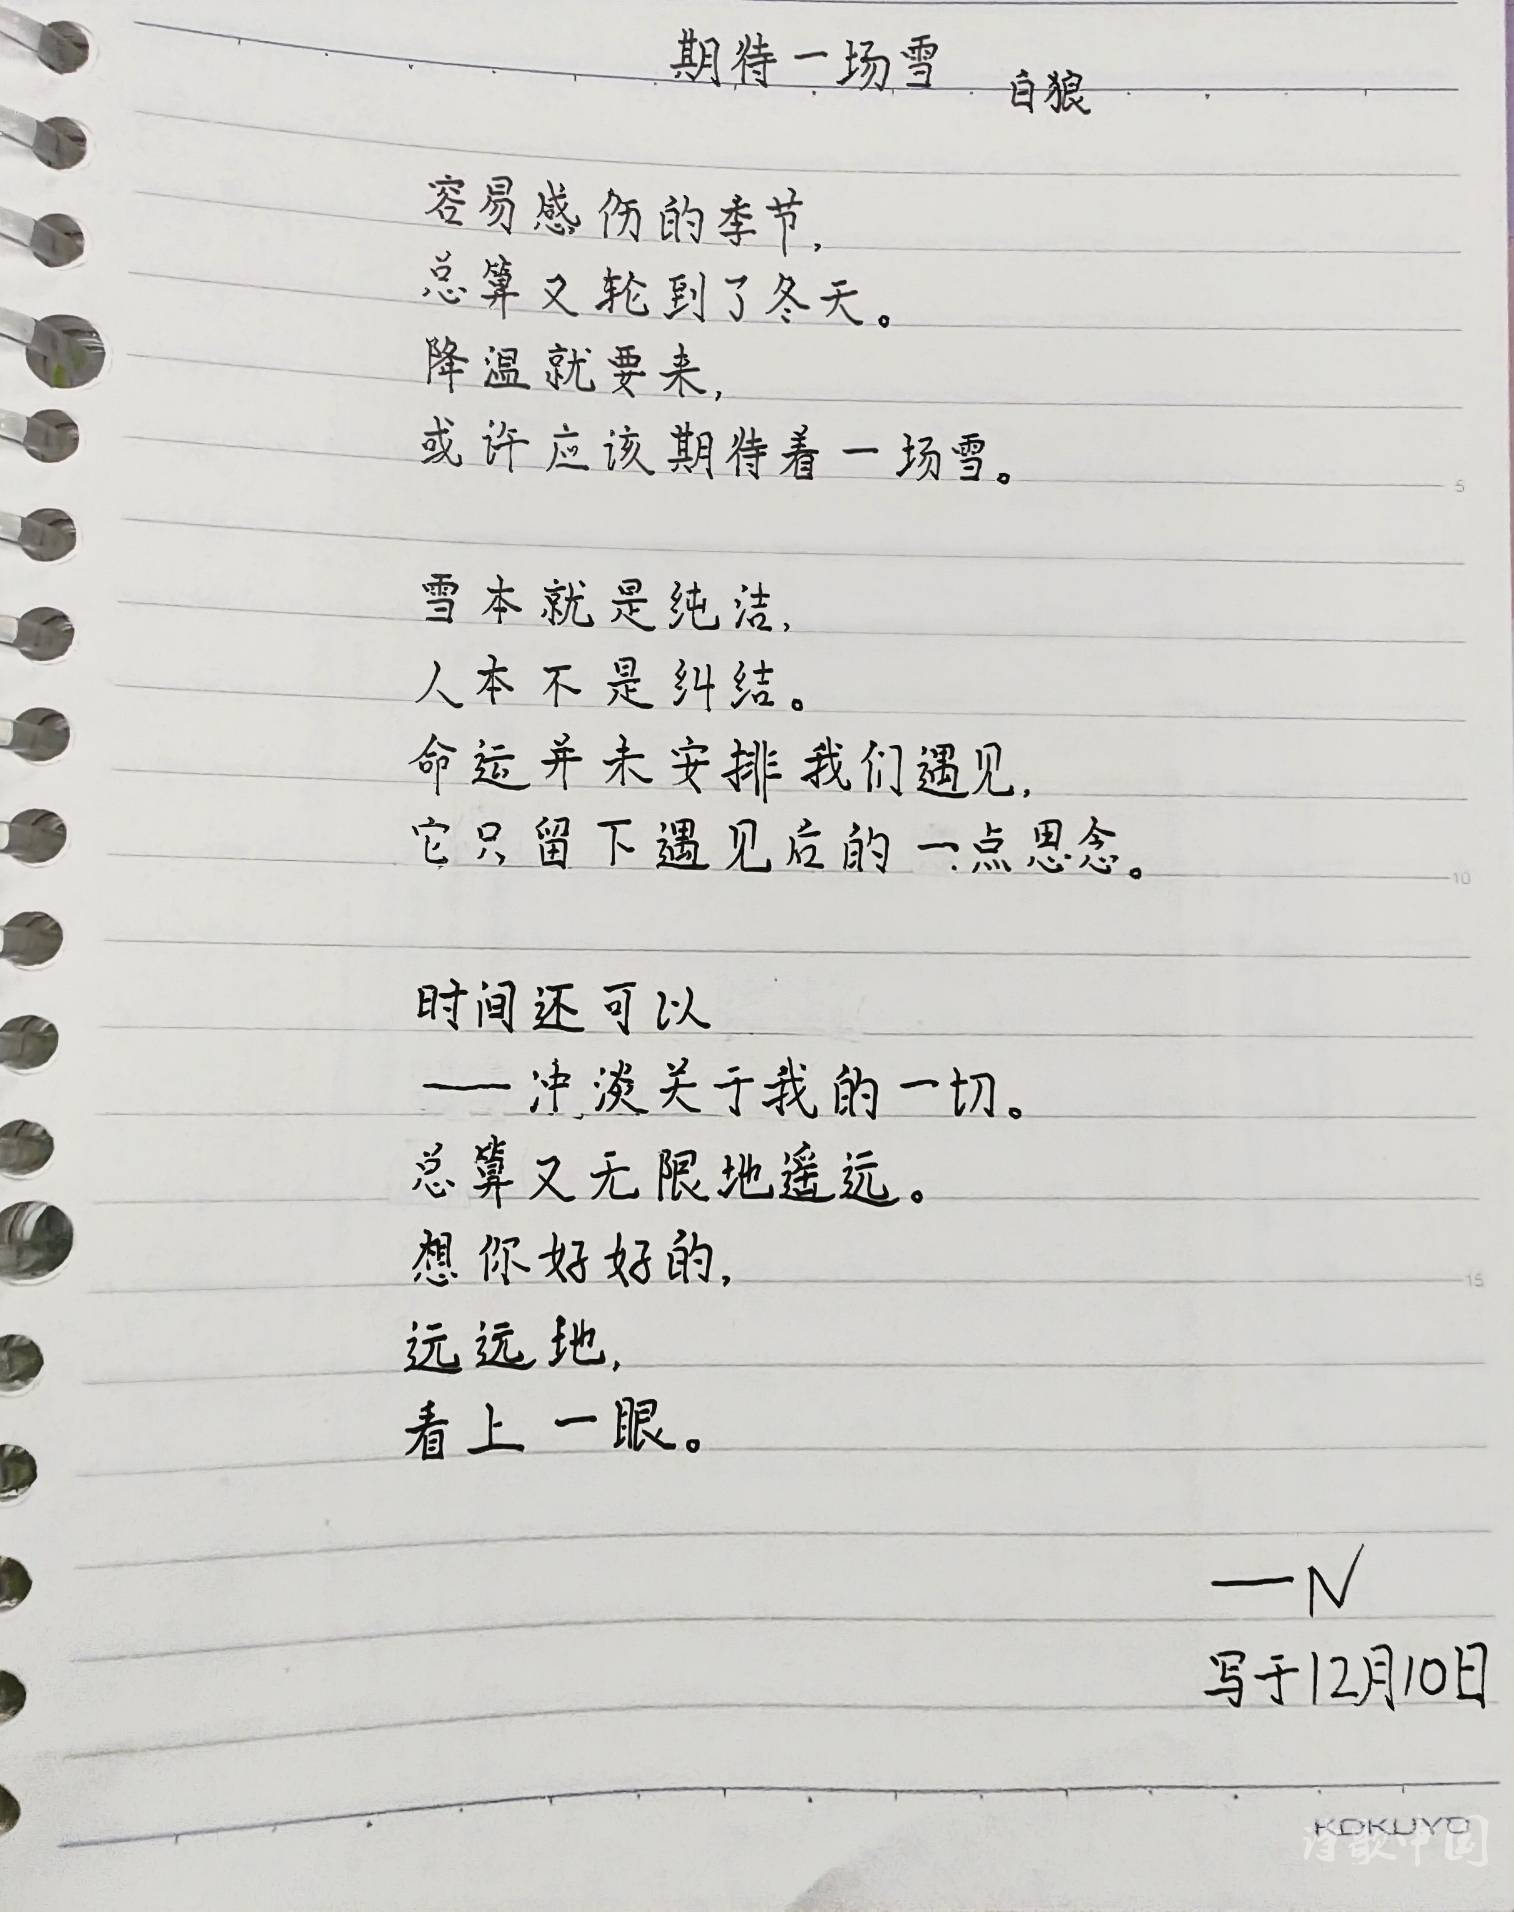 期待一场雪
白狼
容易感伤的季节，
总算又轮到了冬天。
降温就要来，
或许应该期待着一场雪。
5
雪本就是纯洁，
人本不是纠结。
命运并未安排我们遇见，
它只留下遇见后的一点思念。
10
时间还可以
——冲淡关于我的一切。
总算又无限地遥远。
想你好好的，
15
远远地，
看上一眼。
——N
写于12月10日
KOKUYO
诗歌中国